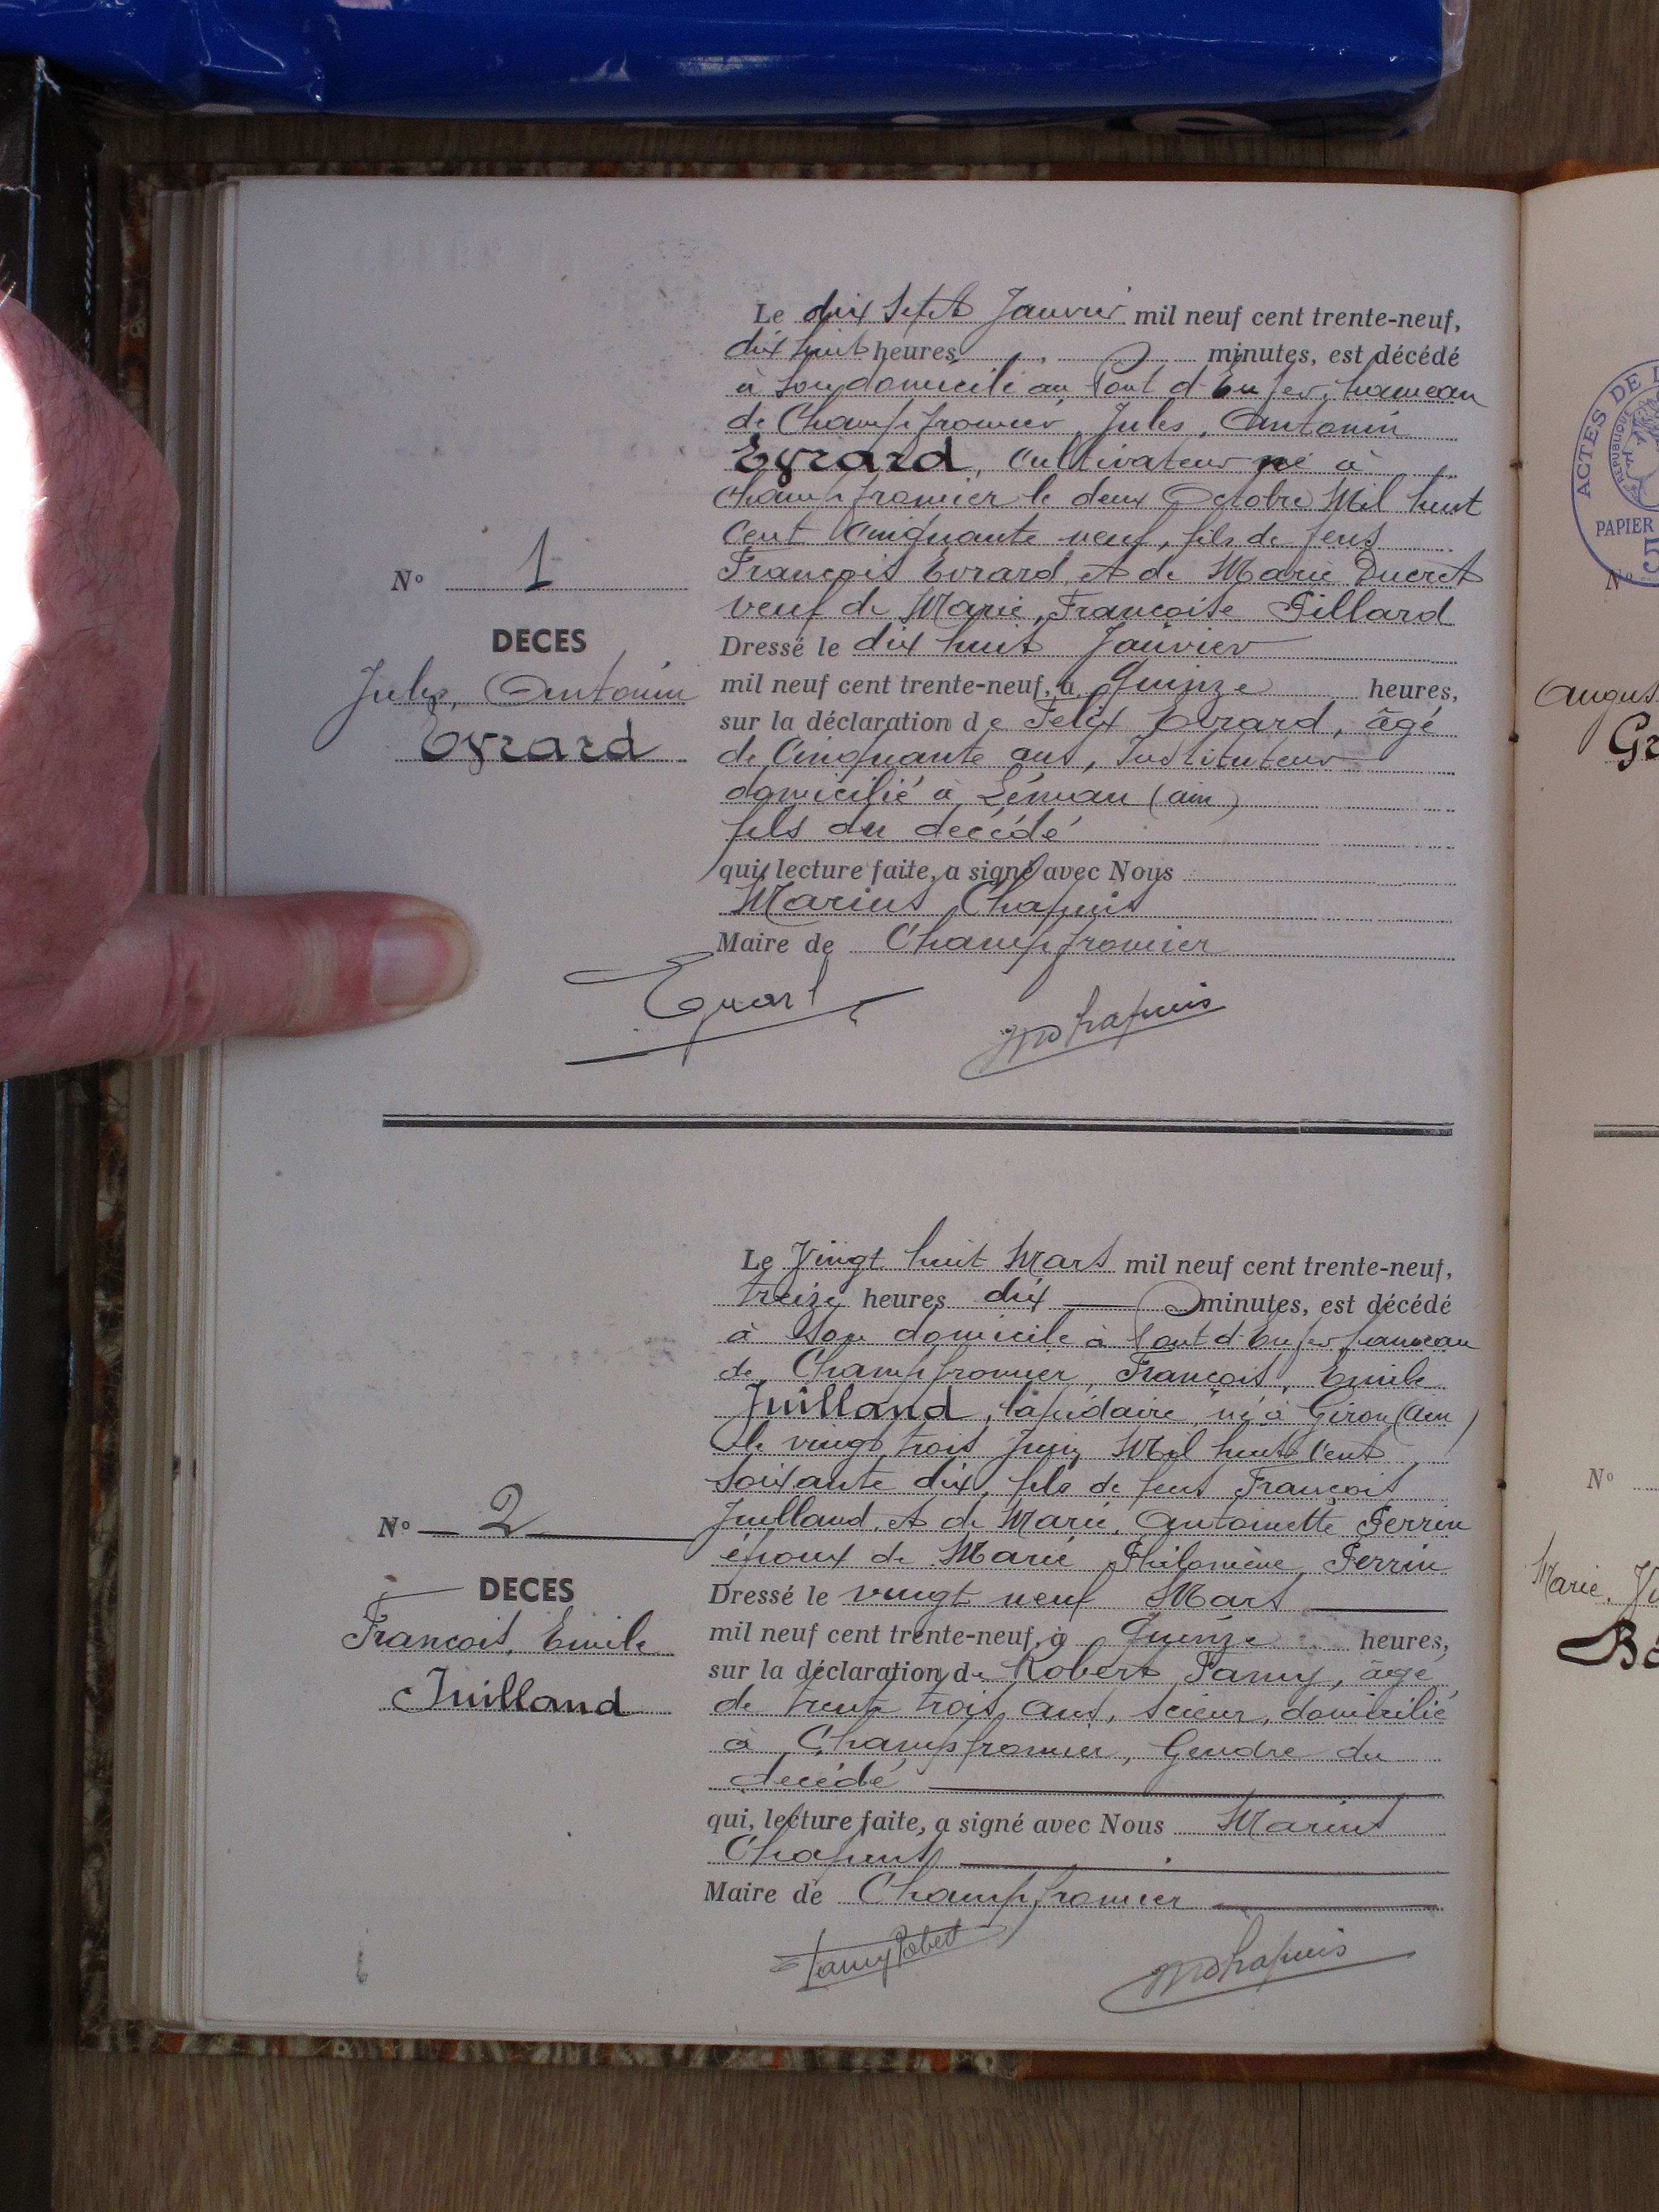 Le dix sept Janvier mil neuf cent trente-neuf,
dix huit heures minutes, est décédé
à son domicile au Pont d'Enfer, hameau
de Champfromier, Jules, Antonin
Evrard, Cultivateur né à
Champfromier le deux Octobre Mil huit
Cent Cinquante neuf, fils de feus
François Evrard, et de Marie Ducret
veuf de Marie, Françoise Pillard
N° 1
DECES
Jules, Antonin
Evrard
Dressé le dix huit Janvier
mil neuf cent trente-neuf, à Quinze heures,
sur la déclaration de Felix Evrard, âgé
de Cinquante ans, Instituteur
domicilié à (ain)
fils du décédé
qui, lecture faite, a signé avec Nous
Marius Chapuis
Maire de Champfromier
Evrard
MChapuis
Le Vingt huit Mars mil neuf cent trente-neuf,
treize heures dix minutes, est décédé
à son domicile à Pont d'Enfer hameau
de Champfromier, François, Emile
Juilland, lapidaire, né à Giron (Ain)
le vingt trois Juin Mil huit Cent
soixante dix, fils de feus François
Juilland, et de Marie, Antoinette Perrin
époux de Marie Philomène Perrin
N° 2
DECES
François, Emile
Juilland
Dressé le vingt neuf Mars
mil neuf cent trente-neuf, à Quinze heures,
sur la déclaration de Robert Famy, âgé
de trente trois ans, scieur, domicilié
à Champfromier, Gendre du
décédé
qui, lecture faite, a signé avec Nous Marius
Chapuis
Maire de Champfromier
Famy Robert
MChapuis
ACTES DE L
RÉPUBLIQUE
PAPIER
5
N°
Augus
Gr
N°
Marie, Ju
Bo